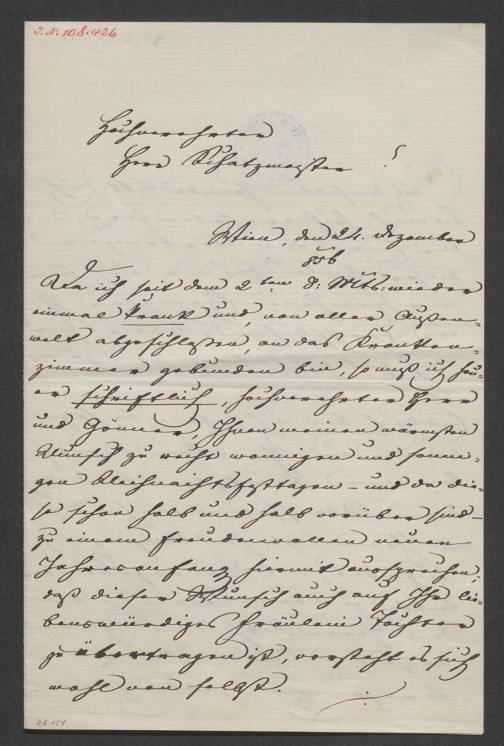 J. N. 108.426
Hochverehrter
Herr Schatzmeister!
Wien, den 24. Dezember
856
Da ich seit dem 2ten d: Mts: wieder
einmal krank und, von aller Außen-
welt abgeschlossen, an das Kranken-
zimmer gebunden bin, so muß ich heu-
er schriftlich, hochverehrter Herr
und Gönner, Ihnen meinen wärmsten
Wunsch zu recht wonnigen und sonni-
gen Weihnachtsfesttagen – und da die-
se schon halb und halb vorüber sind –
zu einem freudevollen neuen
Jahresanfang hiermit aussprechen;
daß dieser Wunsch auch auf Ihr lie-
benswürdiges Fräulein Tochter
zu übertragen ist, versteht es sich
wohl von selbst.